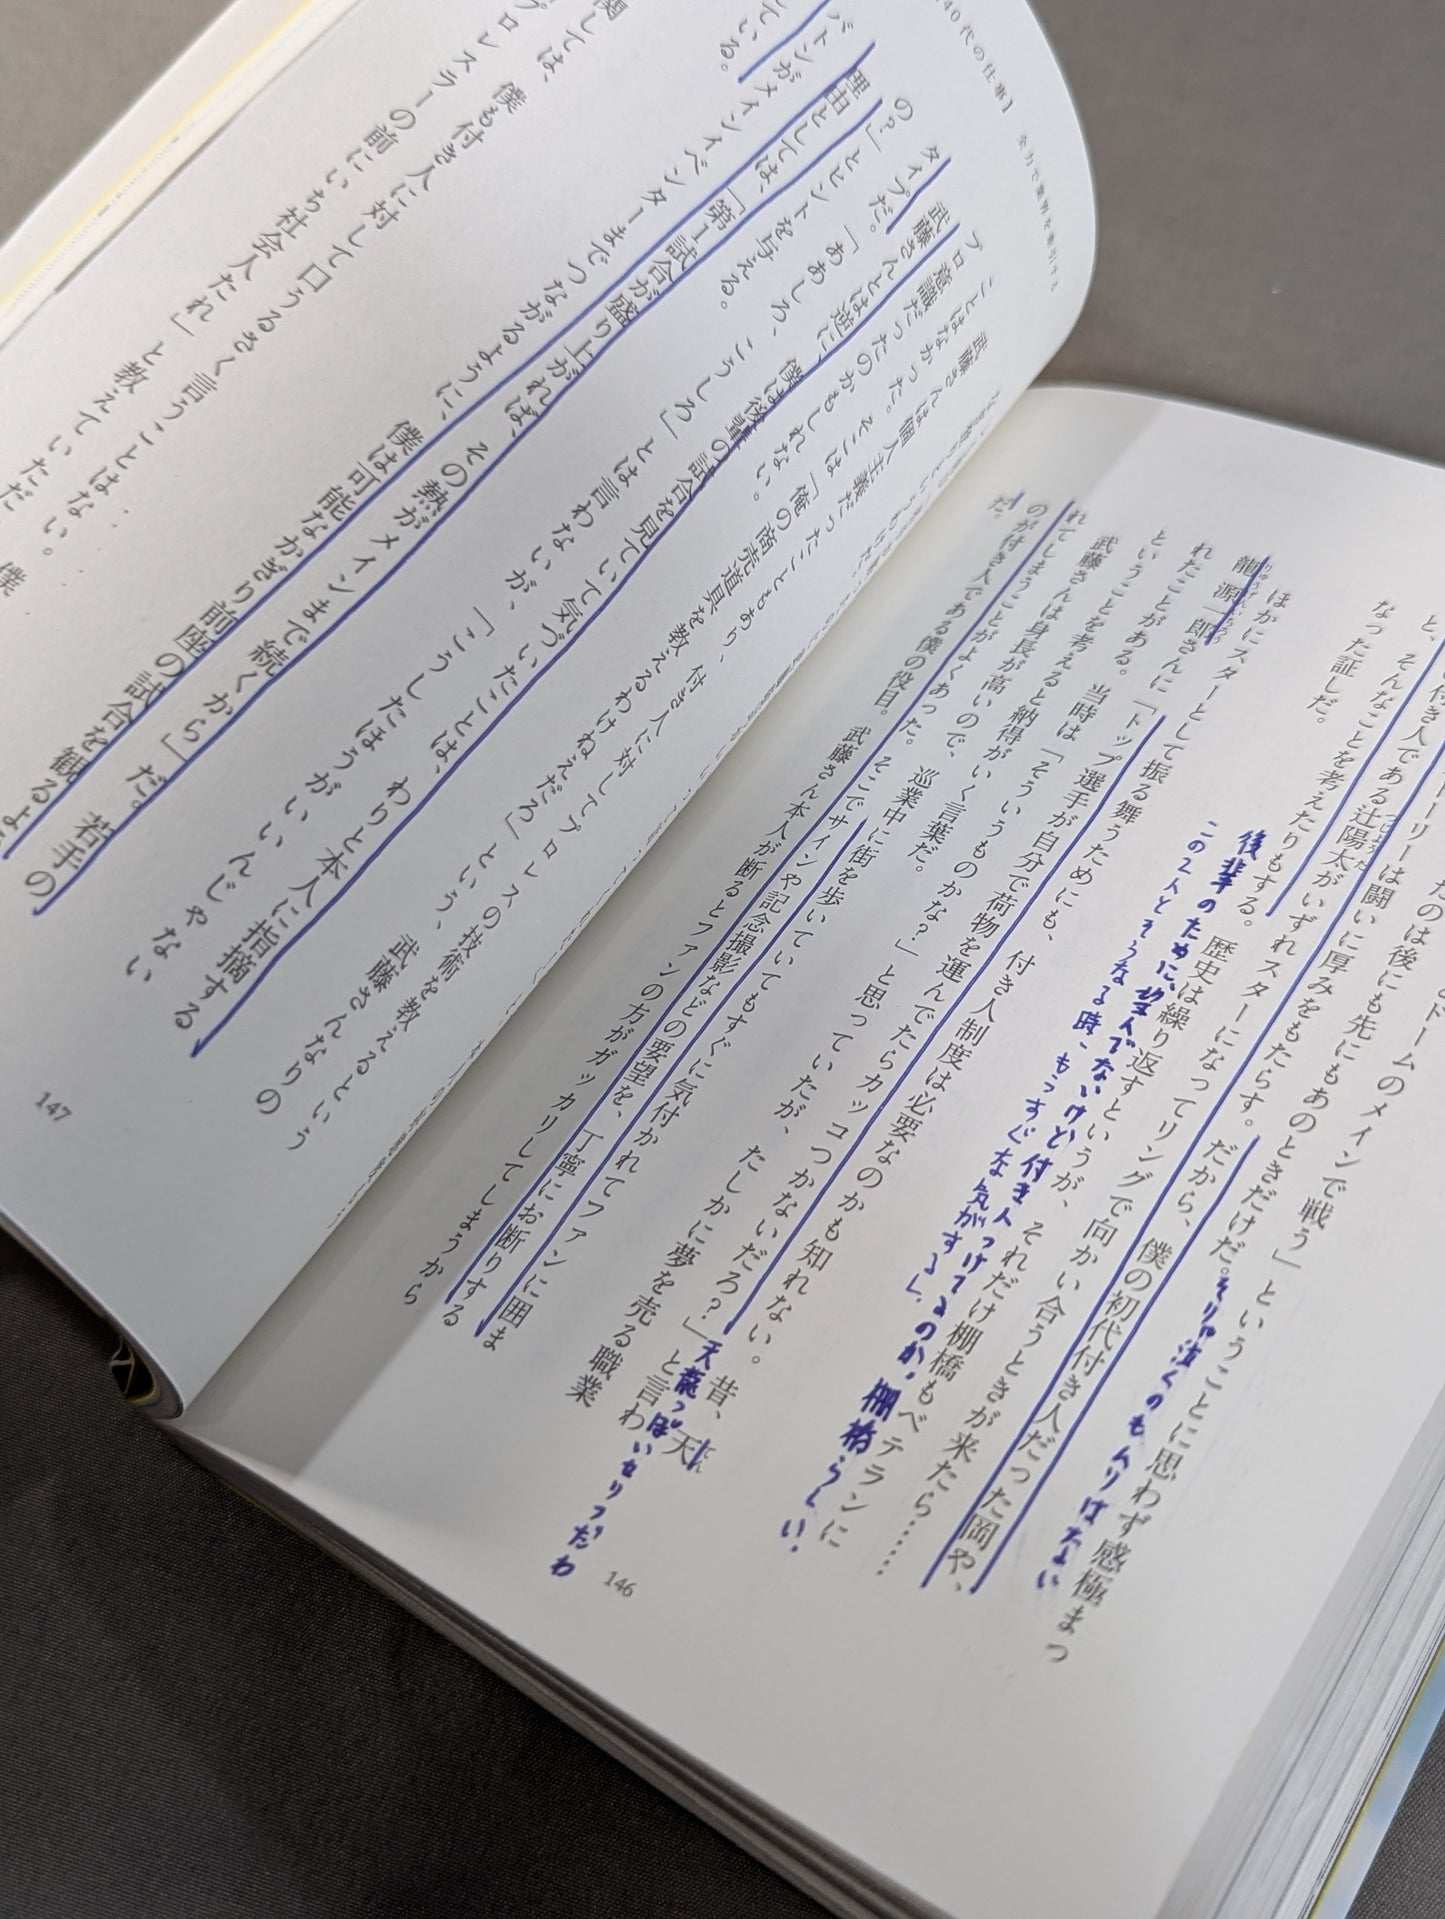 たのは後にも先にもあのときだけだ。そりゃ泣くのもムリはない
ドームのメインで戦う」ということに思わず感極まっ
トーリーは闘いに厚みをもたらす。だから、僕の初代付き人だった岡や、
付き人である辻陽太がいずれスターになってリングで向かい合うときが来たら……
と、そんなことを考えたりもする。歴史は繰り返すというが、それだけ棚橋もベテランに
なった証しだ。
この2人とそうなる時、もうすぐな気がする
後輩のために、望んでないけど付き人つけてるのか、棚橋らしい。
ほかにスターとして振る舞うためにも、付き人制度は必要なのかも知れない。昔、天
龍源一郎さんに「トップ選手が自分で荷物を運んでたらカッコつかないだろ?」と言わ
天龍っぽいセリフだわ
れたことがある。当時は「そういうものかな?」と思っていたが、たしかに夢を売る職業
ということを考えると納得がいく言葉だ。
武藤さんは身長が高いので、巡業中に街を歩いていてもすぐに気付かれてファンに囲ま
れてしまうことがよくあった。そこでサインや記念撮影などの要望を、丁寧にお断りする
のが付き人である僕の役目。武藤さん本人が断るとファンの方がガッカリしてしまうから
だ。
146
40代の仕事】 全力で業界を牽引する
武藤さんは個人主義だったこともあり、付き人に対してプロレスの技術を教えるという
ことはなかった。そこは「俺の商売道具を教えるわけねえだろ」という、武藤さんなりの
プロ意識だったのかもしれない。
武藤さんとは逆に、僕は後輩の試合を見ていて気づいたことは、わりと本人に指摘する
タイプだ。「ああしろ、こうしろ」とは言わないが、「こうしたほうがいいんじゃない
の?」とヒントを与える。
理由としては、「第1試合が盛り上がれば、その熱がメインまで続くから」だ。若手の
バトンがメインイベンターまでつながるように、僕は可能なかぎり前座の試合を観るよ
ている。
関しては、僕も付き人に対して口うるさく言うことはない。僕
プロレスラーの前にいち社会人たれ」と教えていただ
147